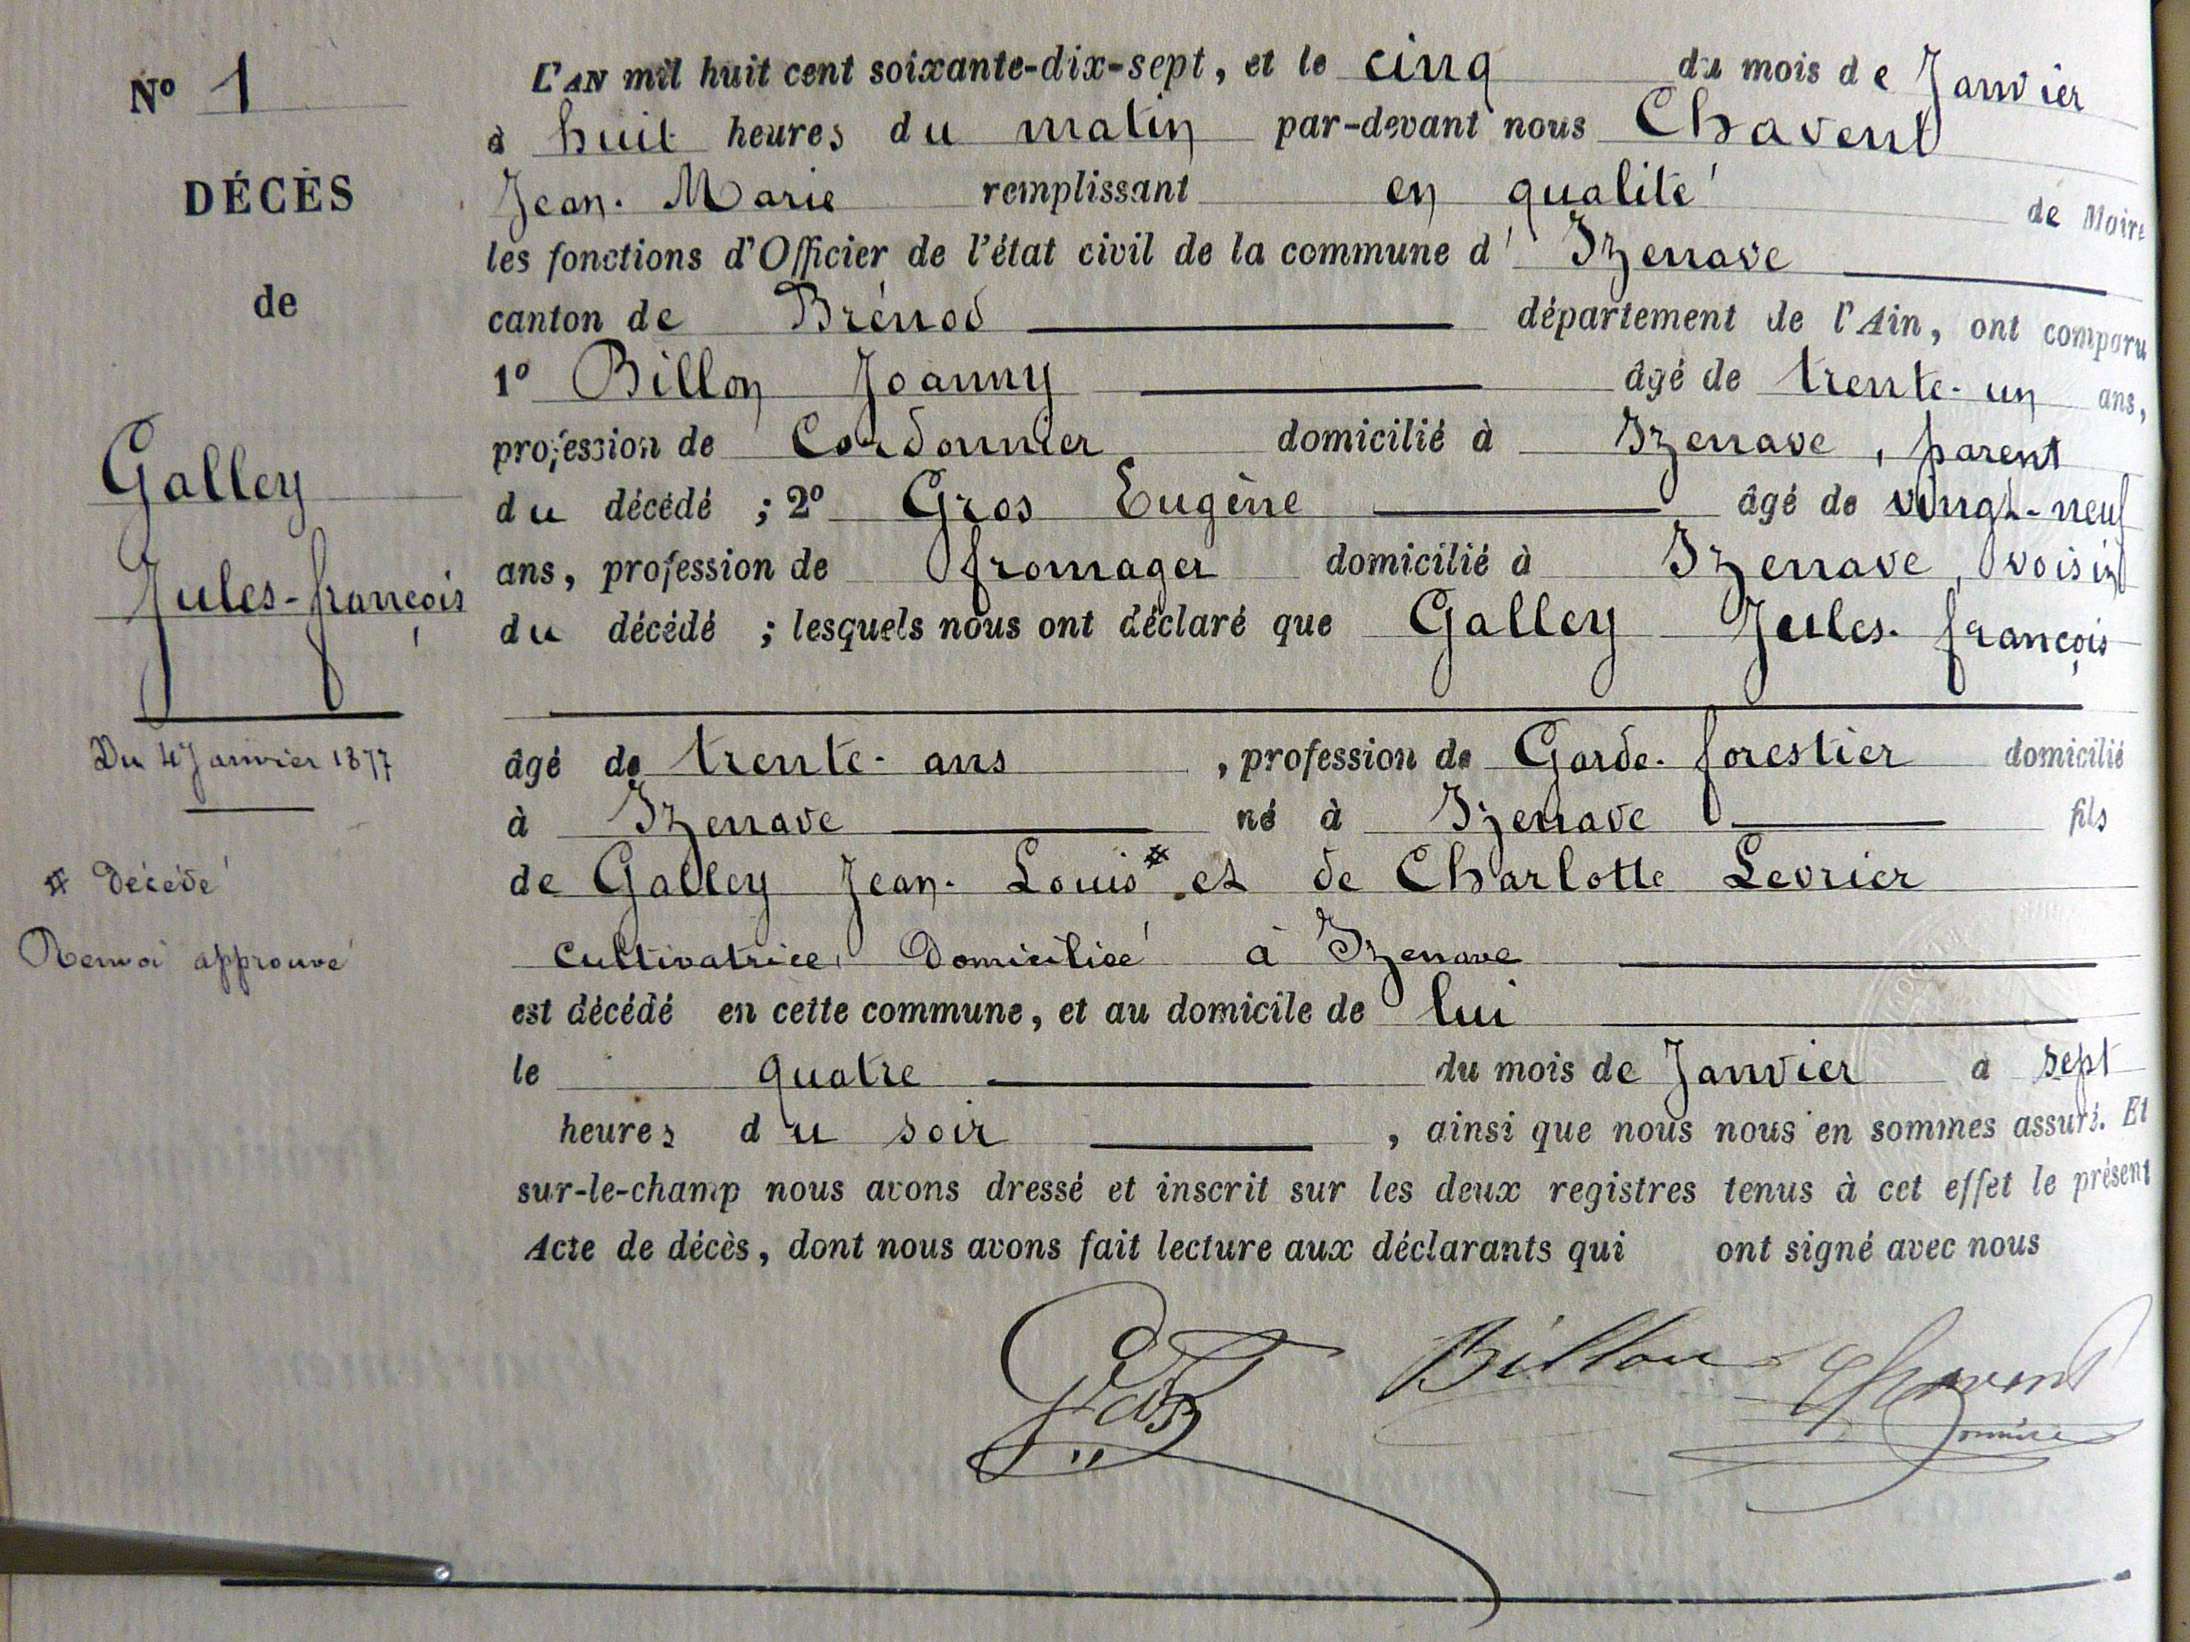 No 1
DÉCÈS
de
Galley
Jules-françois
Du 4 Janvier 1877
# décédé
Renvoi approuvé
L'AN mil huit cent soixante-dix-sept, et le cinq du mois de Janvier
à huit heures du matin par-devant nous Chavent
Jean-Marie remplissant en qualité de Maire
les fonctions d'Officier de l'état civil de la commune d' Izenave
canton de Brénod département de l'Ain, ont comparu
1o Billon Joanny âgé de trente-un ans,
profession de Cordonnier domicilié à Izenave, parent
du décédé ; 2o Gros Eugène âgé de vingt-neuf
ans, profession de fromager domicilié à Izenave, voisin
du décédé ; lesquels nous ont déclaré que Galley Jules-françois
âgé de trente-ans , profession de Garde-forestier domicilié
à Izenave né à Izenave fils
de Galley Jean-Louis # et de Charlotte Levrier
cultivatrice, domiciliée à Izenave
est décédé en cette commune, et au domicile de lui
le quatre du mois de Janvier à sept
heures du soir , ainsi que nous nous en sommes assuré. Et
sur-le-champ nous avons dressé et inscrit sur les deux registres tenus à cet effet le présent
Acte de décès, dont nous avons fait lecture aux déclarants qui ont signé avec nous
Billon Chavent